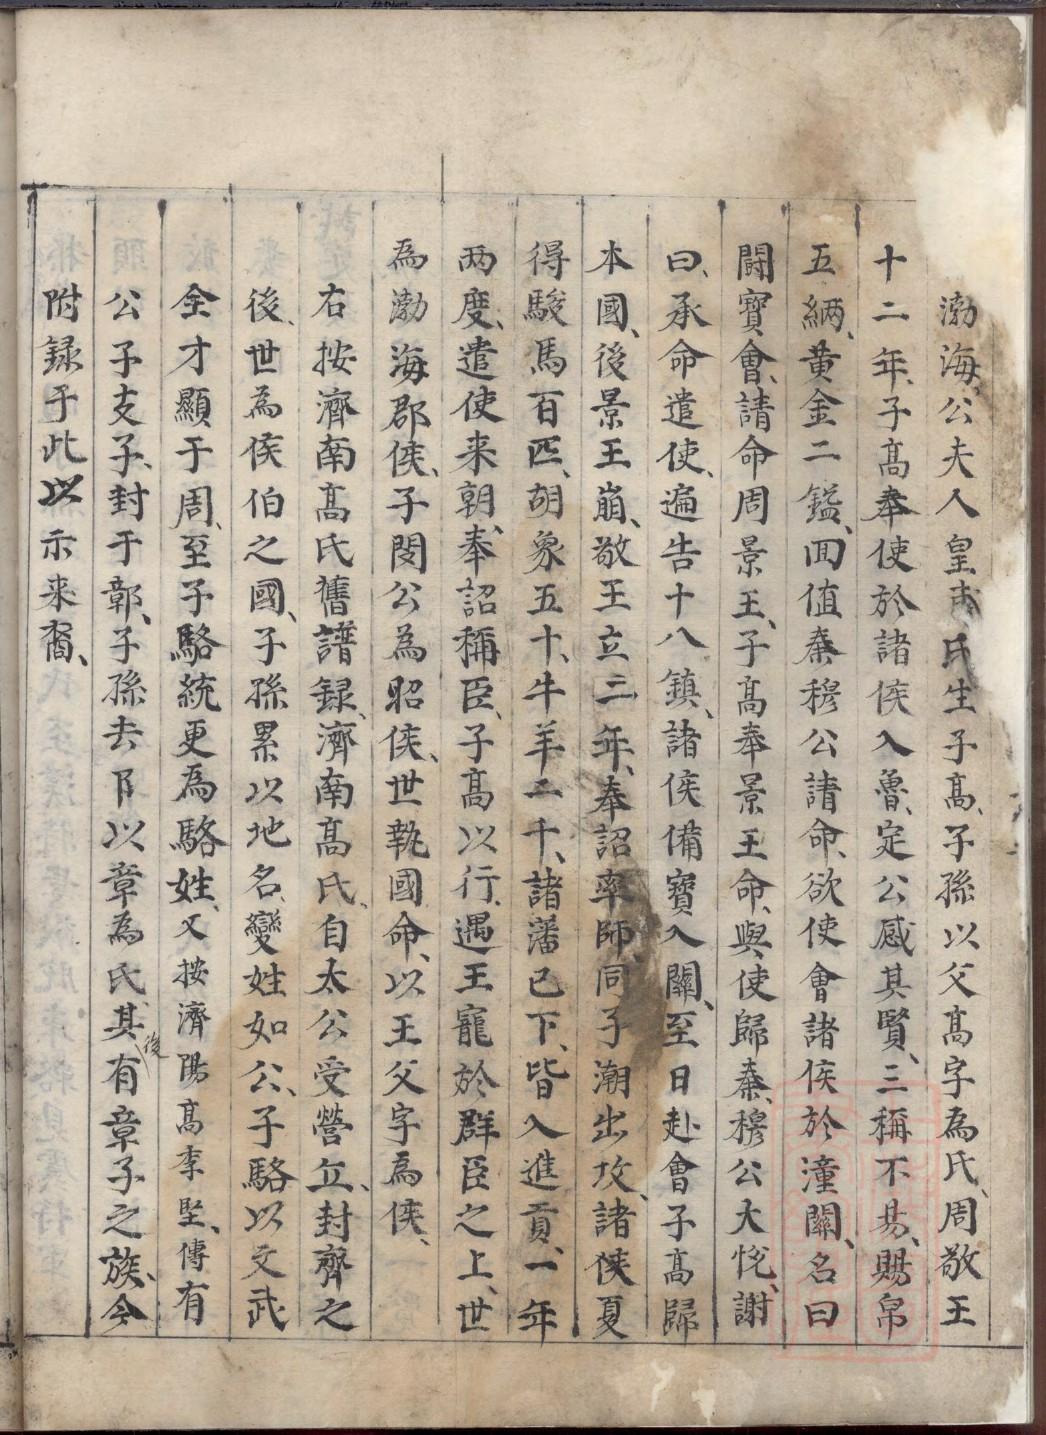 渤海、公夫人皇甫氏生子高、子孫以父高字為氏、周敬王
十二年、子高奉使於諸侯入魯、定公感其賢、三稱不昜、賜帛
五緉、黄金二鎰、囬值秦穆公請命、欲使會諸侯於潼關、名曰
鬪寳會、請命周景王、子高奉景王命、與使歸秦、穆公大悅、謝
曰、承命遣使、遍告十八鎮、諸侯備寳入關、至日赴會子高歸
本國、後景王崩、敬王立二年、奉詔率師、同子潮出攻、諸侠夏
得駿馬百匹、胡象五十、牛羊二千、諸藩已下、皆入進貢、一年
两度、遣使来朝、奉詔稱臣、子高以行、遇王寵於群臣之上、世
為渤海郡侯、子閔公為昭侯、世執國命、以王父字為侯、
右按濟南高氏舊譜録、濟南高氏、自太公受營丘、封齊之
後、世為侯伯之國、子孫累以地名、變姓如公、子駱以文武
全才顯于周、至子駱統更為駱姓、又按濟陽高李堅、傳有
公子支子、封于鄣、子孫去阝以章為氏、其後有章子之族、今
附録于此以示来裔、